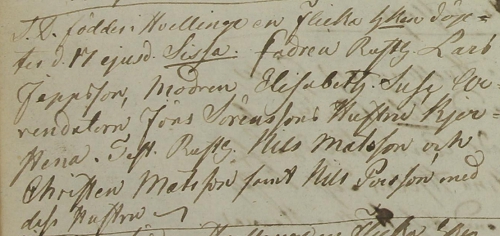 S. D. föddes i Hvellinge en Flicka hvilken döp=
tes d. 17 ejusd. Sissa. Fadren Rustg. Lars
Jeppsson, Modren Elisabeth. Susc.
rendatorn Jöns Sörenssons Hustru Kjer=
stena. Test. Rustg. Nils Matsson, och
Christen Matsson samt Nils Persson med
dess Hustru
en Flicka